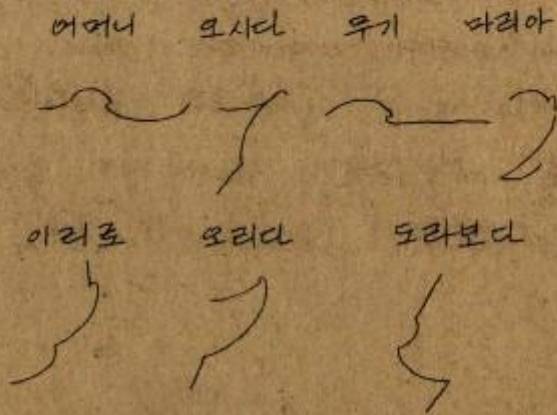 어머니 오시다 무기 마리아
이리로 오리다 도라보다